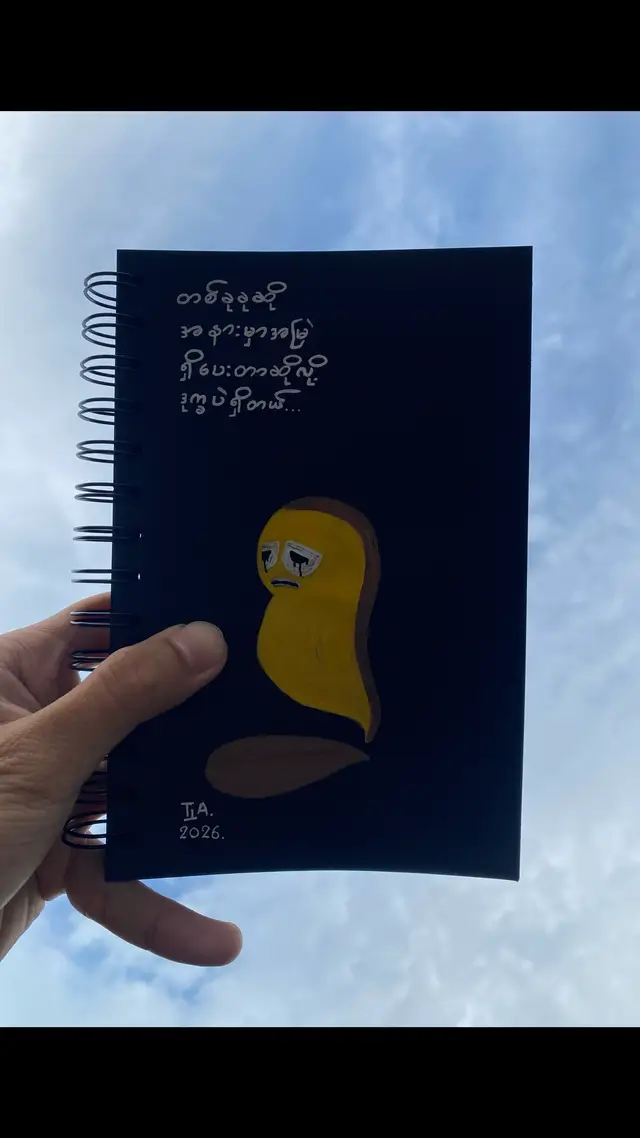 တစ်ခုခုဆို
အနားမှာအမြဲ
ရှိပေးတာဆိုလို့
ဒုက္ခပဲရှိတယ်...
TLA.
2026.